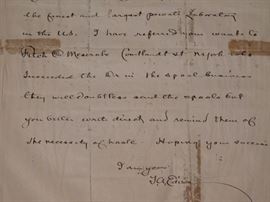 the finest and largest private Laboratory
in the U.S. I have referred your wants to
Fitch & Meserole Cortlandt St NYork who
Succeeded the Co in the spool business
they will doubtless send the spools but
you better write direct and remind them of
the necessity of haste. Hoping your success
I am yours
T.A. Edison